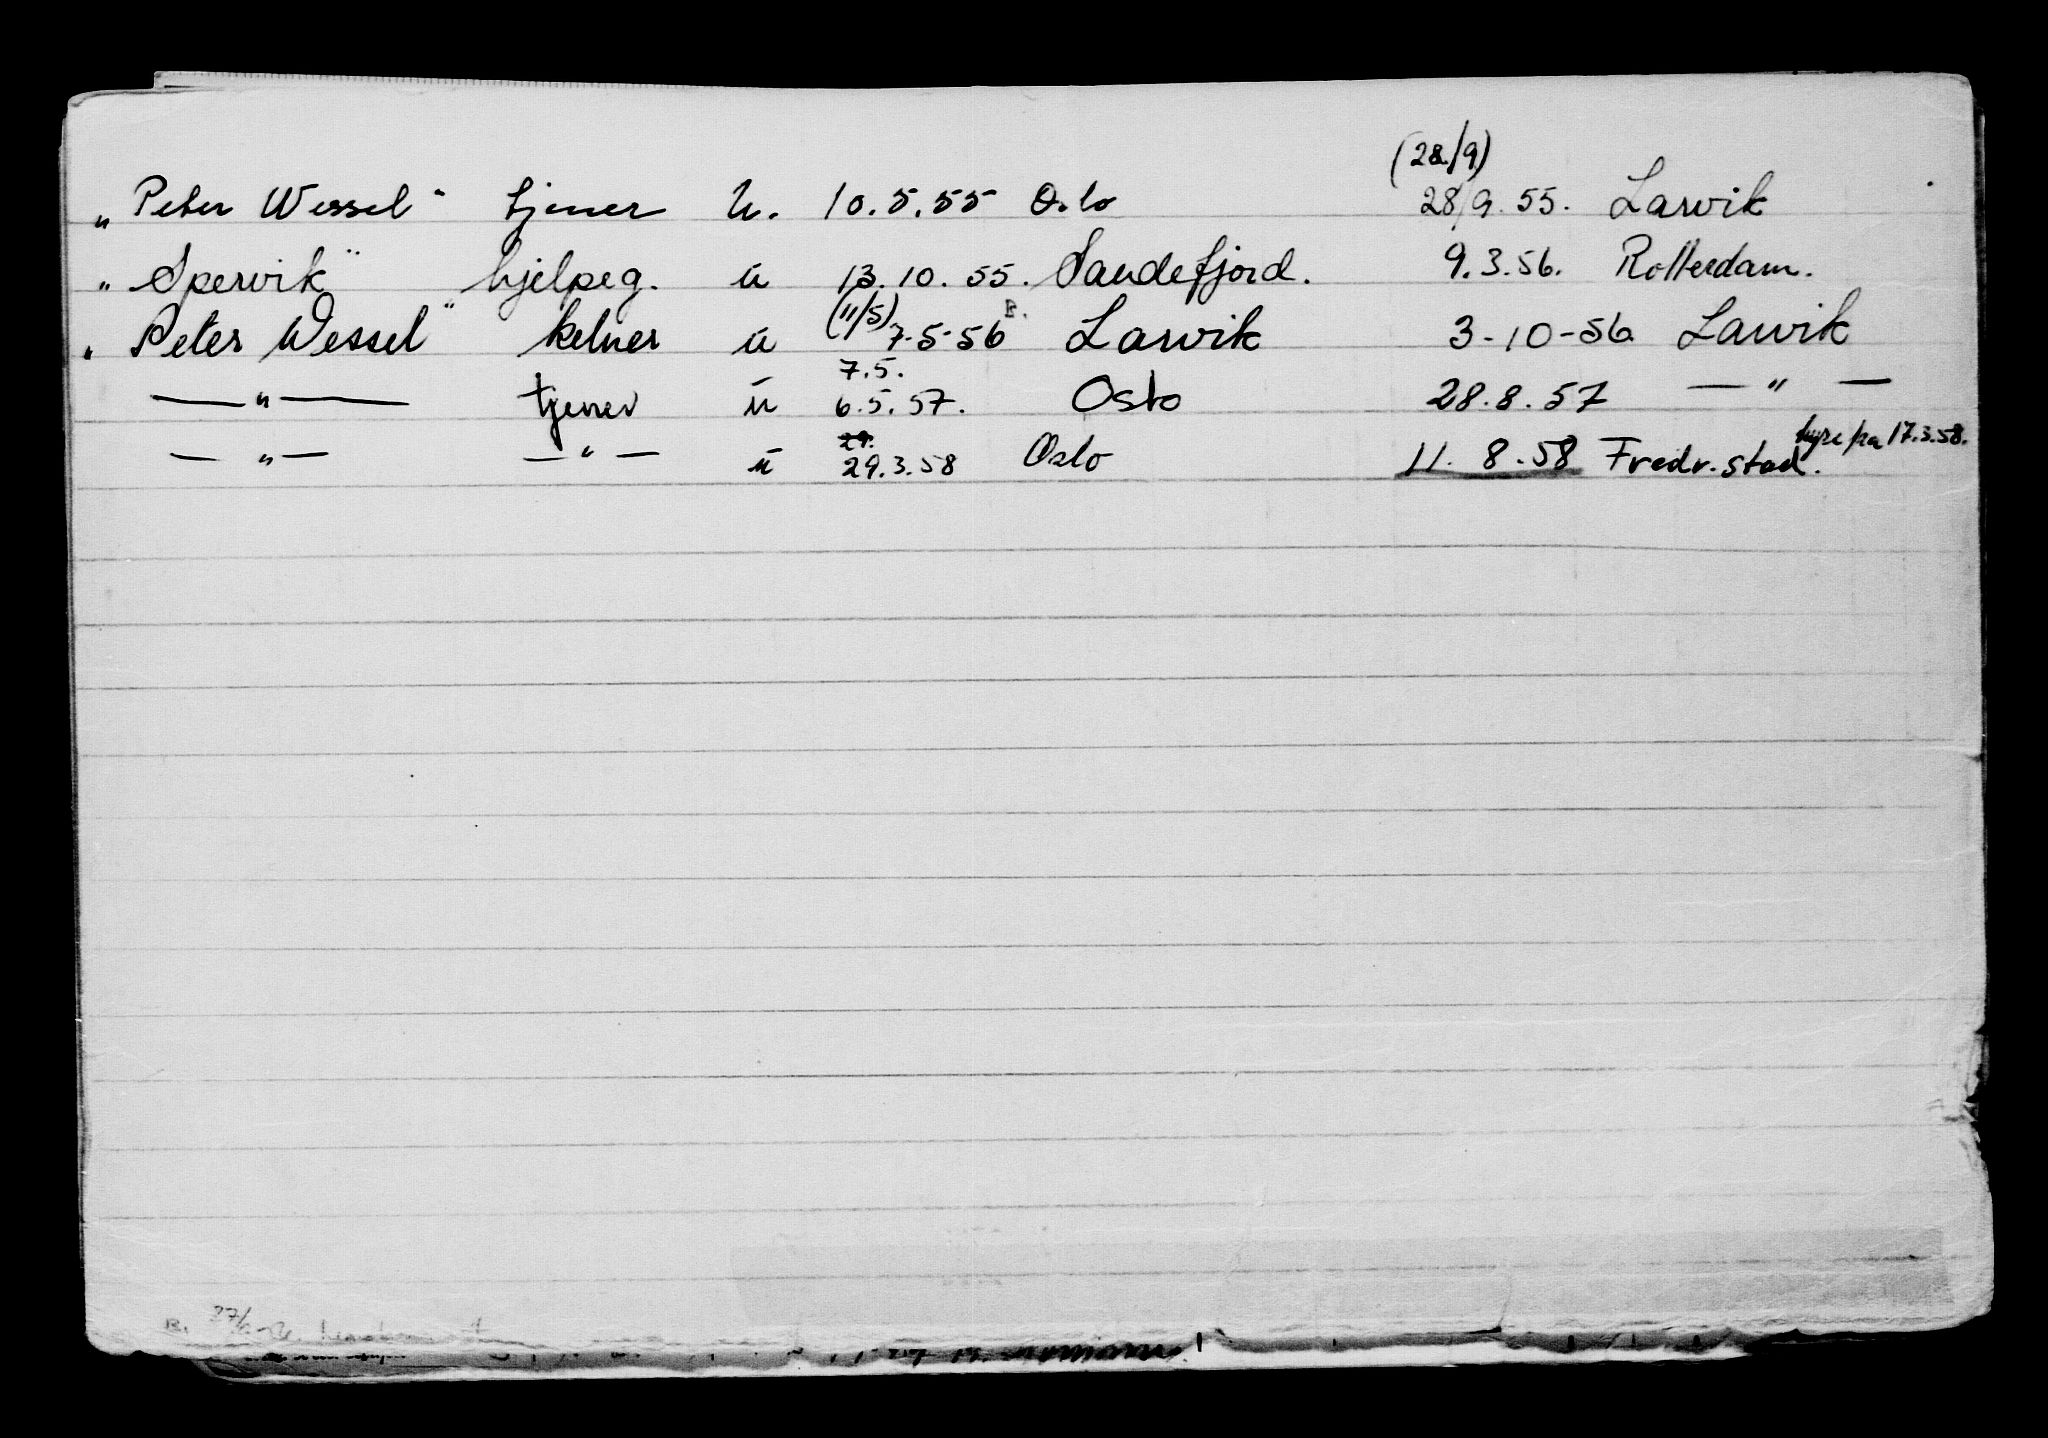 (28/9)
„Peter Wessel" tjener u. 10.5.55 Oslo 28/9.55. Larvik
„Spervik" hjelpeg. u 13.10.55. Sandefjord. 9.3.56. Rotterdam.
„Peter Wessel" kelner u (11/5) 7-5-56 B. Larvik 3-10-56 Larvik
7.5.
— „ — tjener u 6.5.57. Oslo 28.8.57 — „ —
29.
— „ — — „ — u 29.3.58 Oslo 11.8.58 Fredr.stad. hyre fra 17.3.58.
B.